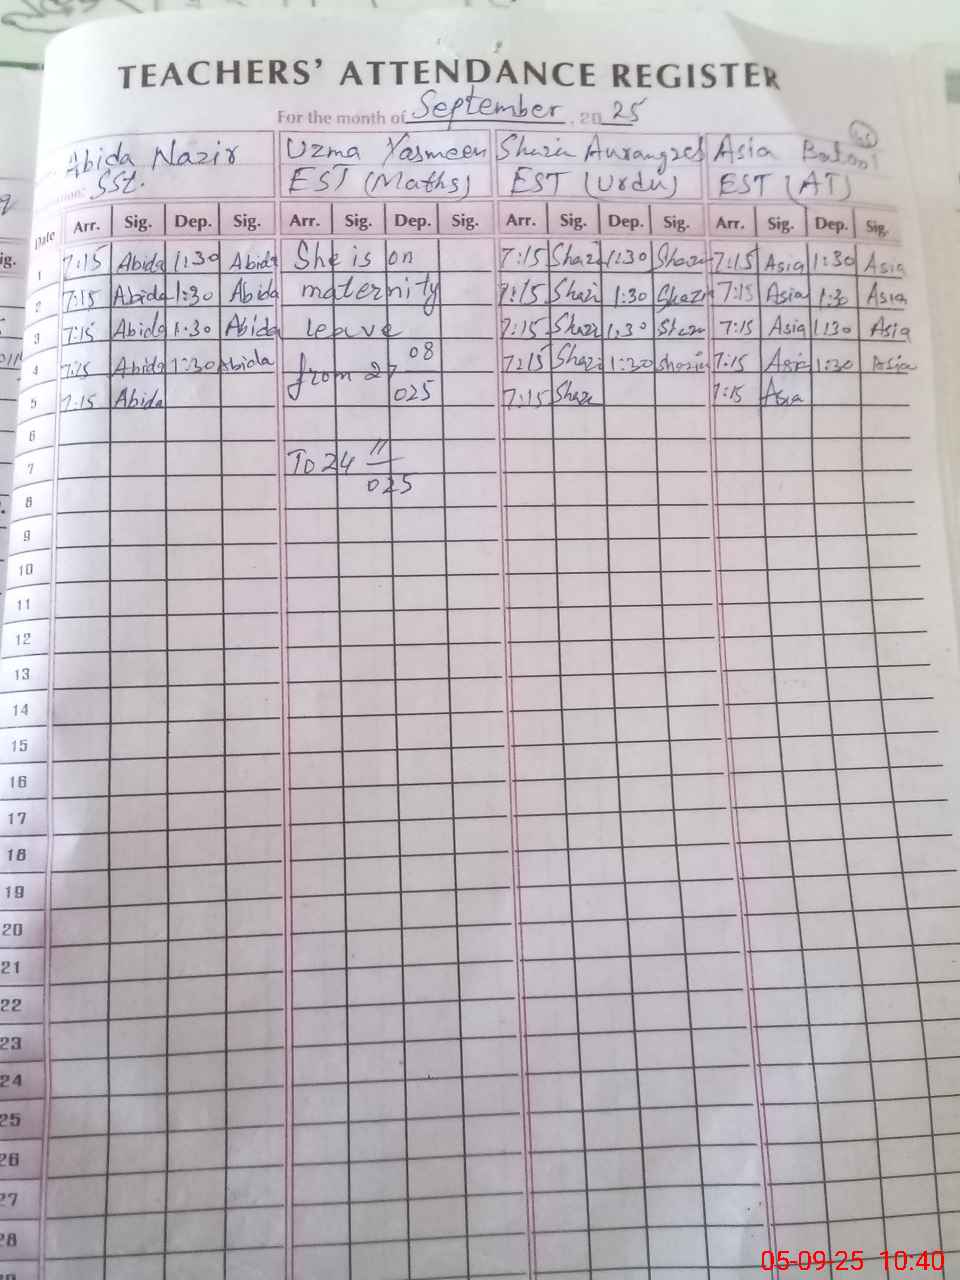 TEACHERS' ATTENDANCE REGISTER
For the month of September . 20 25
Abida Nazir Uzma Yasmeen Aurangzeb Asia Batool
SSt. EST (Maths) EST (Urdu) EST (AT)
Date Arr. Sig. Dep. Sig. Arr. Sig. Dep. Sig. Arr. Sig. Dep. Sig. Arr. Sig. Dep. Sig.
1 7:15 Abida 1:30 Abida She is on 7:15 Shazi 1:30 Shazi 7:15 Asia 1:30 Asia
2 7:15 Abida 1:30 Abida maternity 7:15 Shazi 1:30 Shazi 7:15 Asia 1:30 Asia
3 7:15 Abida 1:30 Abida leave 7:15 Shazi 1:30 Shazi 7:15 Asia 1:30 Asia
4 7:15 Abida 1:30 Abida from 27 08 7:15 Shazi 1:30 Shazia 7:15 Asia 1:30 Asia
5 7:15 Abida 025 7:15 Shazi 7:15 Asia
6
7 To 24 11
8 025
9
10
11
12
13
14
15
16
17
18
19
20
21
22
23
24
25
26
27
28
05-09-25 10:40